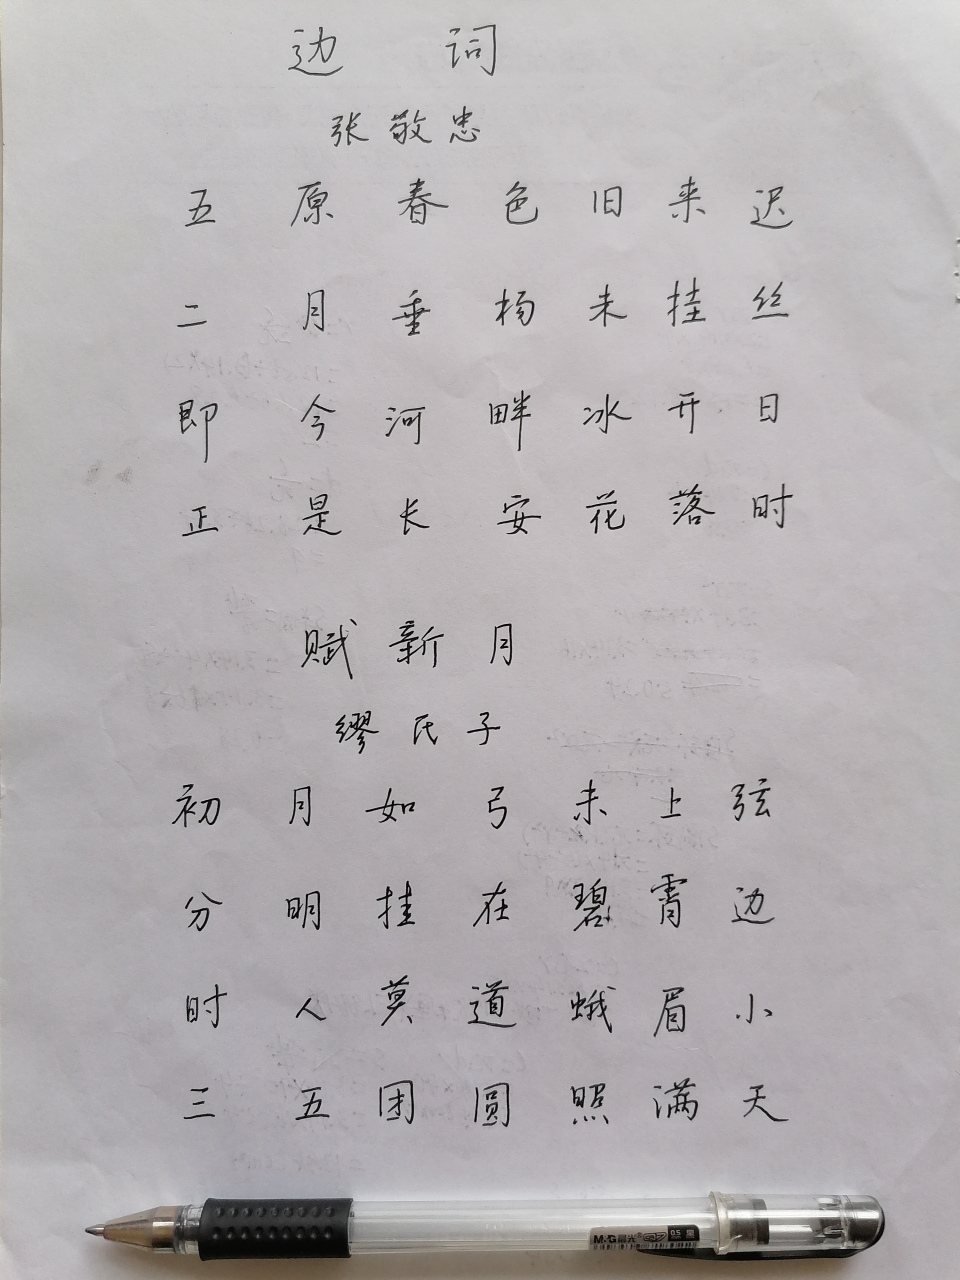 边词
张敬忠
五原春色旧来迟
二月垂杨未挂丝
即今河畔冰开日
正是长安花落时
赋新月
缪氏子
初月如弓未上弦
分明挂在碧霄边
时人莫道蛾眉小
三五团圆照满天
M&G晨光 0.5 黑